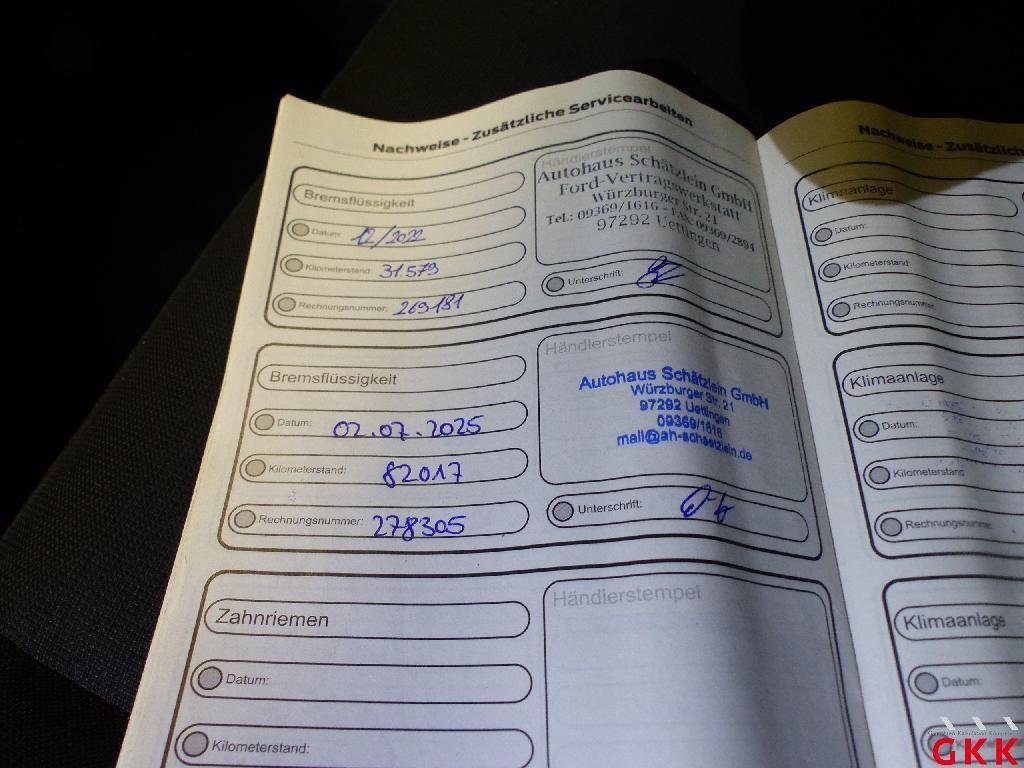 Nachweise - Zusätzliche Servicearbeiten
Bremsflüssigkeit
Datum: 12/2022
Kilometerstand: 31.579
Rechnungsnummer: 269181
Händlerstempel
Autohaus Schätzlein GmbH
Ford-Vertragswerkstatt
Würzburger Str. 21
Tel.: 09369/1616 - Fax 09369/2894
97292 Uettingen
Unterschrift:
Bremsflüssigkeit
Datum: 02.07.2025
Kilometerstand: 82017
Rechnungsnummer: 278305
Händlerstempel
Autohaus Schätzlein GmbH
Würzburger Str. 21
97292 Uettingen
09369/1616
mail@ah-schaetzlein.de
Unterschrift:
Zahnriemen
Datum:
Kilometerstand:
Händlerstempel
Nachweise - Zusätzlich
Klimaanlage
Datum:
Kilometerstand:
Rechnungsnummer:
Klimaanlage
Datum:
Kilometerstand:
Rechnungsnummer:
Klimaanlage
Datum:
GKK